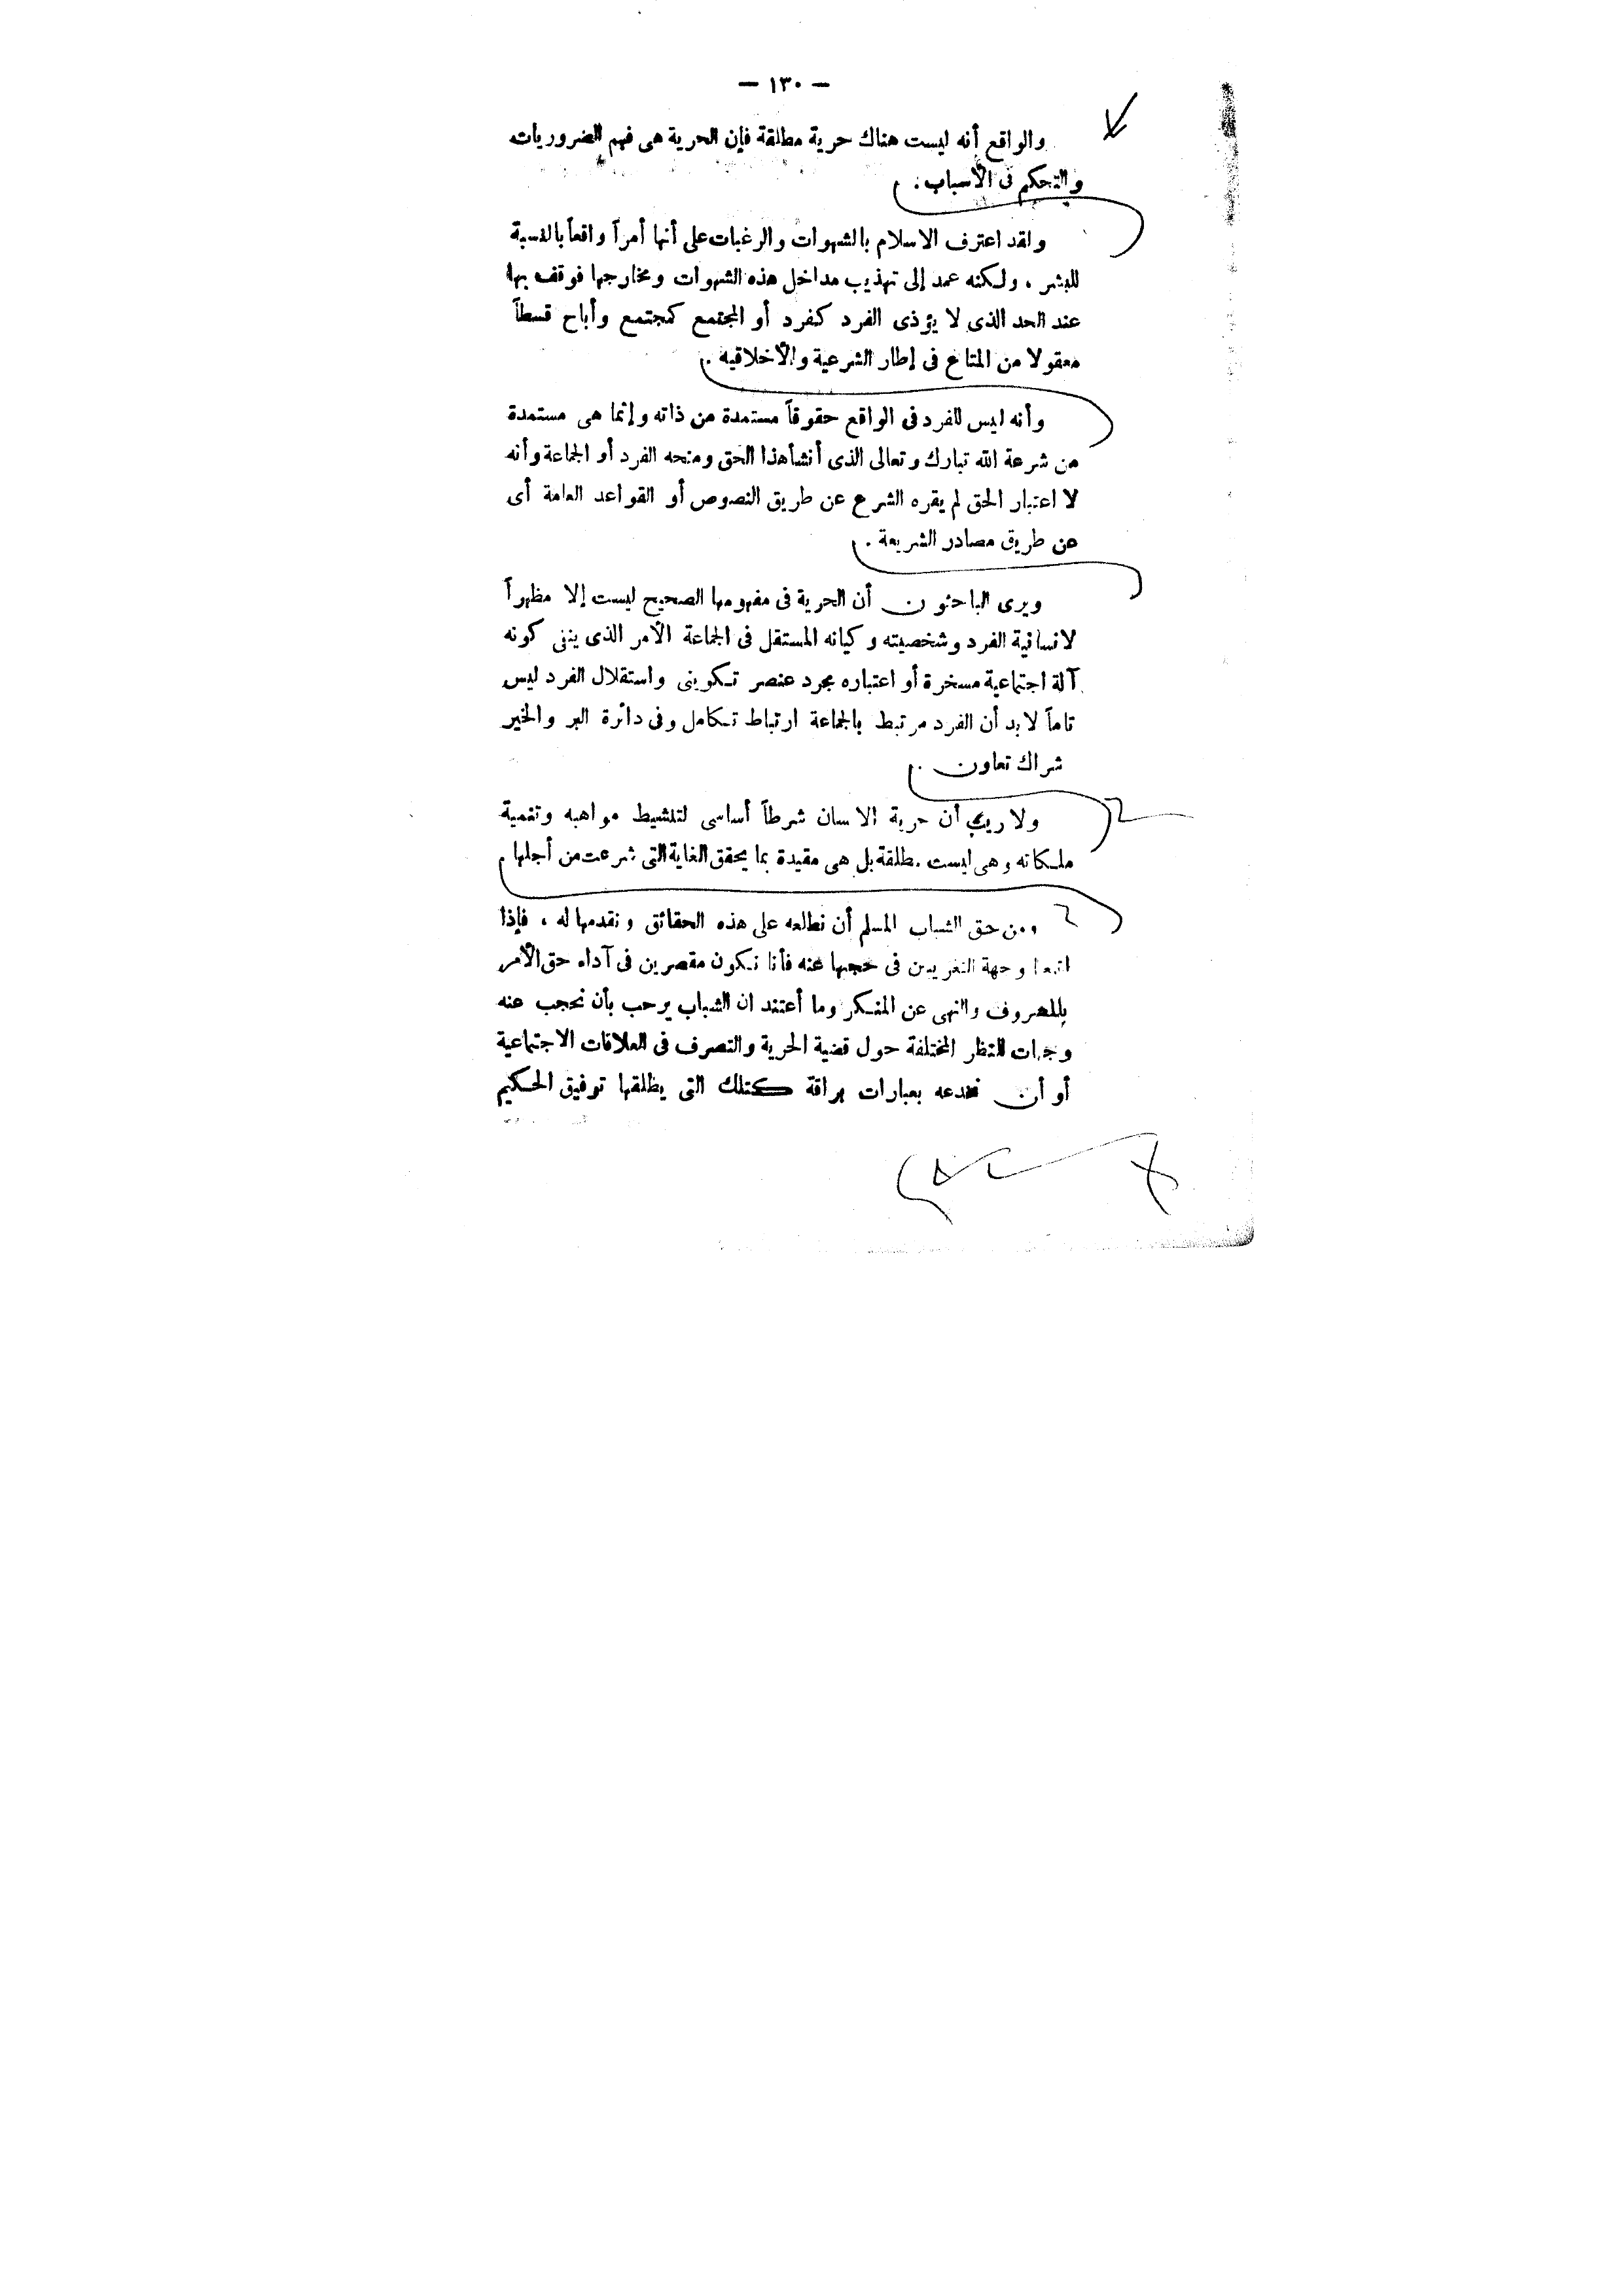 — ١٣٠ —
والواقع أنه ليست هناك حرية مطلقة فإن الحرية هى فهم الضروريات
والتحكم فى الأسباب .
ولقد اعترف الاسلام بالشهوات والرغبات على أنها أمراً واقعاً بالنسبة
للبشر ، ولكنه عمد إلى تهذيب مداخل هذه الشهوات ومخارجها فوقف بها
عند الحد الذى لا يؤذى الفرد كفرد أو المجتمع كمجتمع وأباح قسطاً
معقولا من المتاع فى إطار الشرعية والأخلاقية .
وأنه ليس للفرد فى الواقع حقوقاً مستمدة من ذاته وإنما هى مستمدة
من شرعة الله تبارك وتعالى الذى أنشأ هذا الحق ومنحه الفرد أو الجماعة وأنه
لا اعتبار الحق لم يقره الشرع عن طريق النصوص أو القواعد العامة أى
عن طريق مصادر الشريعة .
ويرى الباحثون أن الحرية فى مفهومها الصحيح ليست إلا مظهراً
لانسانية الفرد وشخصيته وكيانه المستقل فى الجماعة الأمر الذى ينفى كونه
آلة اجتماعية مسخرة أو اعتباره مجرد عنصر تكوينى واستقلال الفرد ليس
تاماً لابد أن الفرد مرتبط بالجماعة ارتباط تكامل وفى دائرة البر والخير
شراك تعاون .
ولا ريب أن حرية الانسان شرطاً أساسى لتنشيط مواهبه وتنمية
ملكاته وهى ليست مطلقة بل هى مقيدة بما يحقق الغاية التى شرعت من أجلها .
ومن حق الشباب المسلم أن نطلعه على هذه الحقائق ونقدمها له ، فإذا
اتبعنا وجهة التغريبين فى حجبها عنه فأنا نكون مقصرين فى آداء حق الأمر
بالمعروف والنهى عن المنكر وما أعتقد ان الشباب يرحب بأن نحجب عنه
وجهات النظر المختلفة حول قضية الحرية والتصرف فى العلاقات الاجتماعية
أو أن نخدعه بعبارات براقة كتلك التى يطلقها توفيق الحكيم